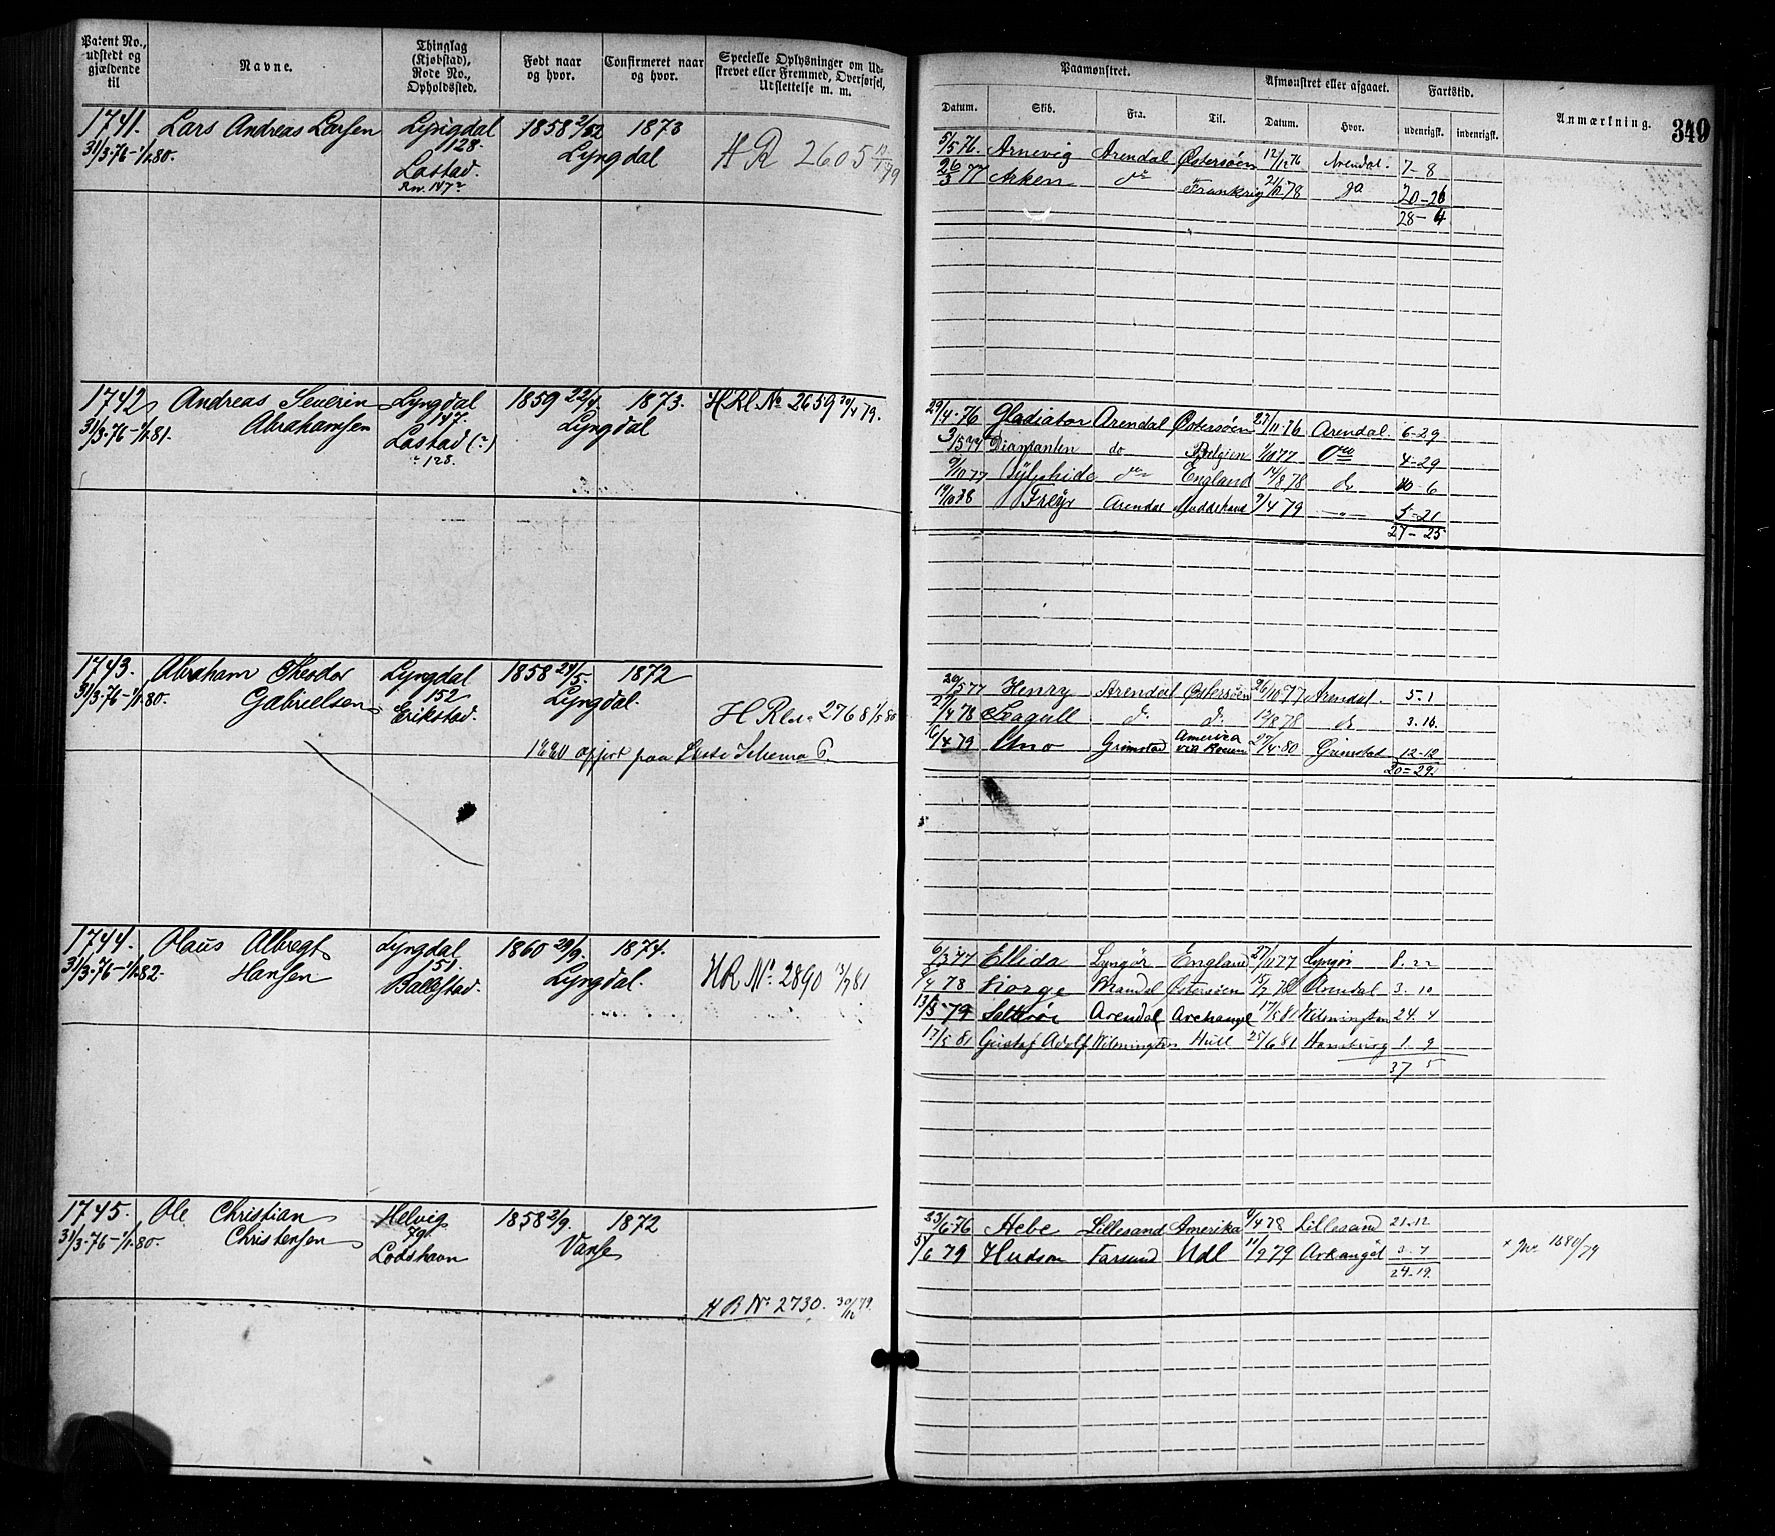 Patent No., udstedt og gjældende til
Navne.
Thinglag (Kjøbstad), Rode No., Opholdssted.
Født naar og hvor.
Confirmeret naar og hvor.
Specielle Oplysninger om Udskrevet eller Fremmed, Overførsel, Udslettelse m. m.
Paamønstret.
Afmønstret eller afgaaet.
Fartstid.
Anmærkning.
349
Datum. Skib. Fra. Til. Datum. Hvor. udenrigsk. indenrigsk.
1741. Lars Andreas Larsen Lyngdal 1858 1873
31/3-76-1/1 80. 128. Lyngdal
Lastad. H R 2605
Rn. 147
5/5 76. Arnevig Arendal Østersøen 12/12 76 Arendal. 7-8
26/3 77 Arken do Frankrig 78 do 20-26
28-4
1742 Andreas Severin Lyngdal 1859 22/4 1873. H Rl No 2659 79.
31/3-76-1/1 81. Abrahamsen 147. Lyngdal
Lastad (?)
128.
29/4-76 Gladiator Arendal Østersøen 27/11 76 Arendal. 6-29
3/5 77 Diamanten do Belgien 1/10 77 do 4-29
9/10 77 Sylphide do England 14/8 78 do 10-6
Freyr Arendal Middelhavet 9/4 79 -"- 5-21
27-25
1743. Abraham Theodor Lyngdal 1858 24/5. 1872
31/3-76-1/1 80. Gabrielsen 152 Lyngdal.
Erikstad. H Rl 2768 1/5 80
1880 opført paa Liste Schema
77 Henry Arendal Østersøen 26/10 77 Arendal. 5-1
78 Seagull do do 78 do 3.16.
6/4 79 Uno Grimstad America via 27/4-80 Grimstad 12-12
20=29.
1744. Olaus Albregt Lyngdal 1860 29/9. 1874.
31/3-76-1/1 82- Hansen 151. Lyngdal.
Ballestad. H R No 2890 13/7 81
6/3 77 Ellida Lyngør England 27/11 77 Lyngør 8.22
9/4 78 Norge Mandal Østersøen 15/7 78 Arendal 3.10
79 Arendal Archangel 17/5 81 Wilmington 24.4
17/5 81 Gustaf Adolf Wilmington Hull 25/6 81 Hamburg 1.9
37 5
1745. Ole Christian Helvig 1858 2/9. 1872
31/3-76-1/1-80. Christensen 79. Vanse
Lodshavn
H R No 2730. 30/12 79.
23/6 76 Hebe Lillesand Amerika 9/4 78 Lillesand 21.12
5/6 79 Hudson Farsund Udl 11/9 79 Arkangel 3-7
24-19.
1680/79